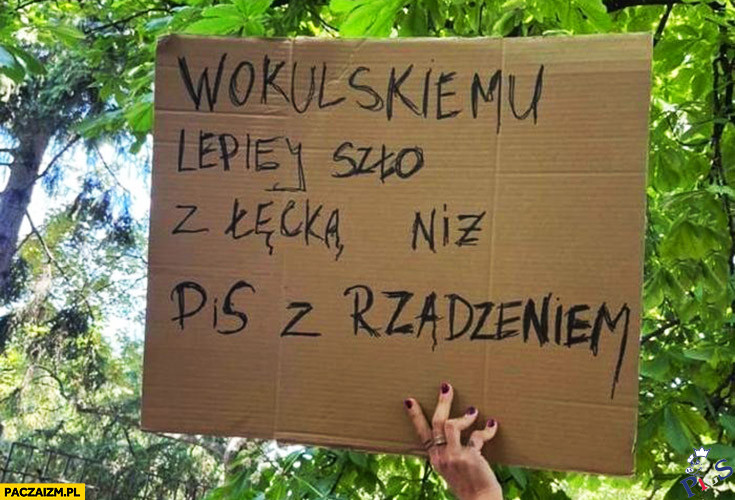 WOKULSKIEMU
LEPIEJ SZŁO
Z ŁĘCKĄ NIŻ
PiS Z RZĄDZENIEM
PACZAIZM.PL
PiS